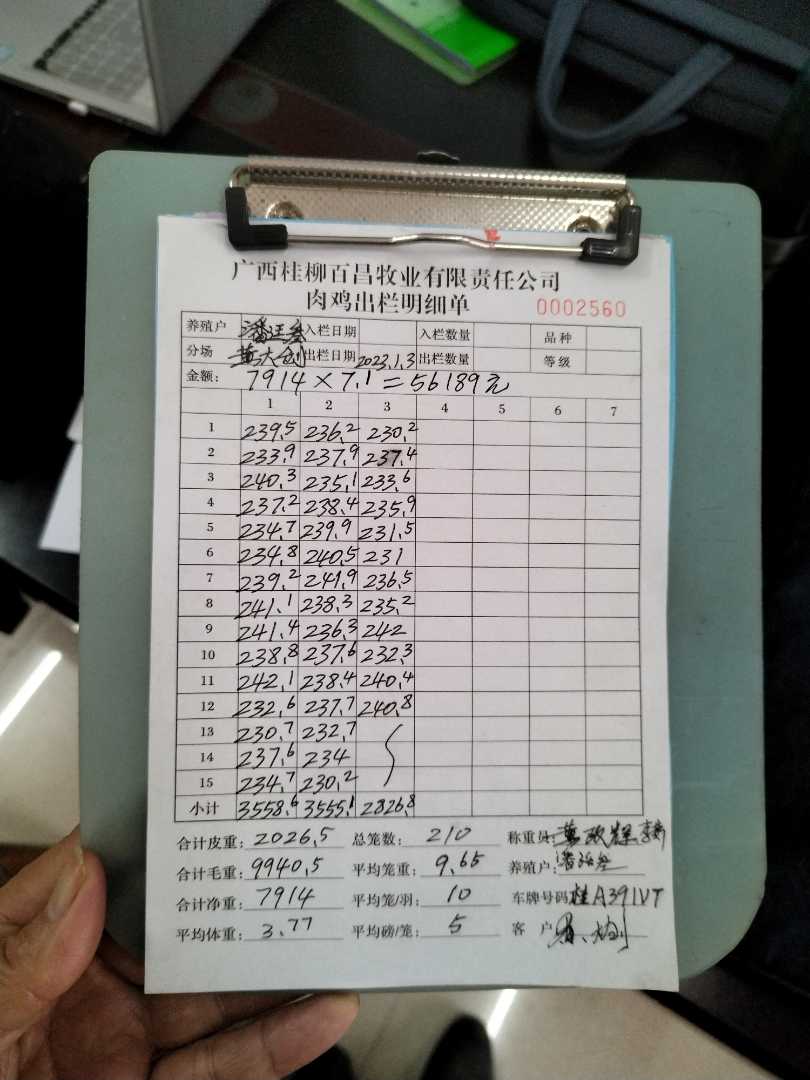 广西桂柳百昌牧业有限责任公司
肉鸡出栏明细单 0002560
养殖户 潘廷 入栏日期 入栏数量 品种
分场 黄大创 出栏日期 2023.1.3 出栏数量 等级
金额: 7914×7.1=56189元
1 2 3 4 5 6 7
1 239.5 236.2 230.2
2 233.9 237.9 237.4
3 240.3 235.1 233.6
4 237.2 238.4 235.9
5 234.7 239.9 231.5
6 234.8 240.5 231
7 239.2 241.9 236.5
8 241.1 238.3 235.2
9 241.4 236.3 242
10 238.8 237.6 232.3
11 242.1 238.4 240.4
12 232.6 237.7 240.8
13 230.7 232.7
14 237.6 234
15 234.7 230.2
小计 3558.6 3555.1 2826.8
合计皮重: 2026.5 总笼数: 210 称重员:
合计毛重: 9940.5 平均笼重: 9.65 养殖户:
合计净重: 7914 平均笼/羽: 10 车牌号码 桂A391VT
平均体重: 3.77 平均磅/笼: 5 客户